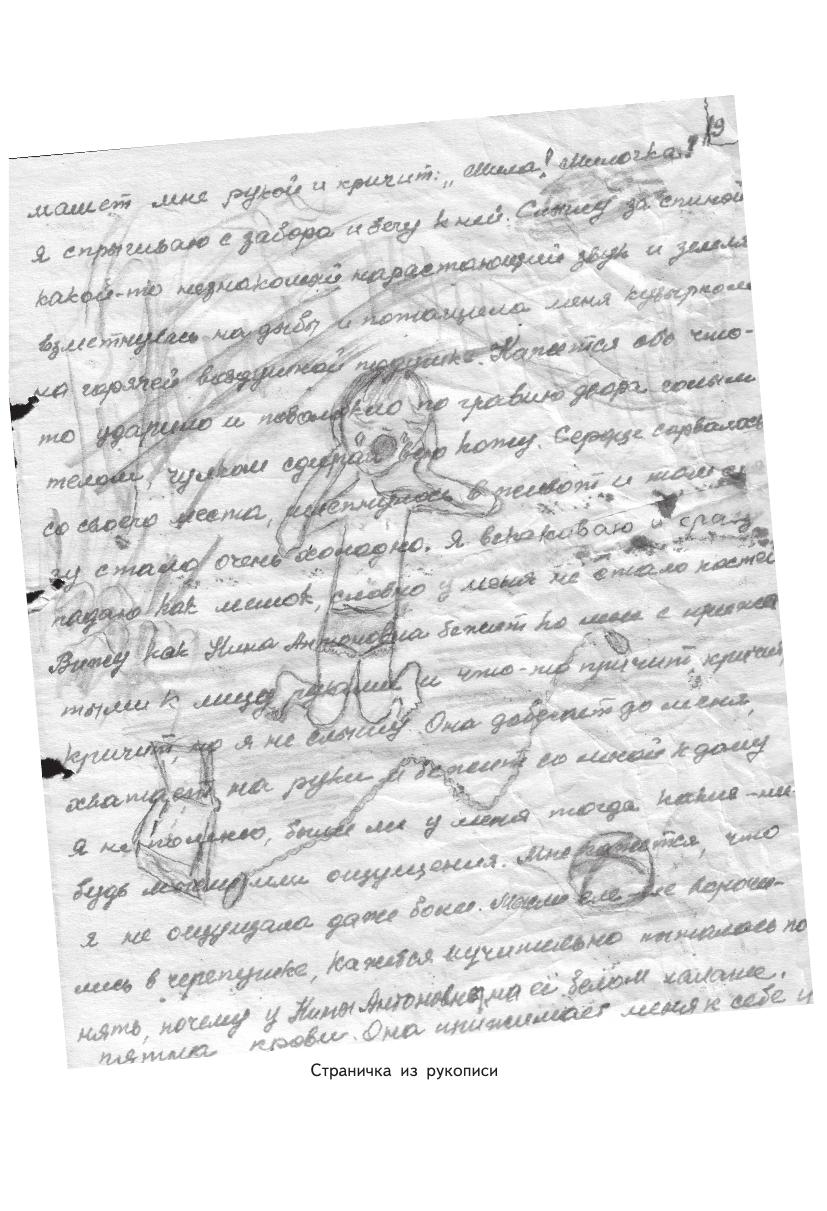 19
машет мне рукой и кричит: „Мила! Милочка!"
Я спрыгиваю с забора и бегу к ней. Слышу за спиной
какой-то незнакомый нарастающий звук и земля
взметнулась на дыбы и потащила меня кувырком
на горячей воздушной подушке. Кажется обо что-
то ударило и поволокло по гравию двора голым
телом, чулком сдирая всю кожу. Сердце сорвалось
со своего места, в живот и
зу стало очень холодно. Я вскакиваю и сразу
падаю как мешок, словно у меня не стало костей
Вижу как Нина Антоновна бежит ко мне с прижа
тыми к лицу руками и что-то кричит, кричит,
кричит, но я не слышу. Она добегает до меня,
хватает на руки и бежит со мной к дому
Я не помню, были ли у меня тогда какие-ни-
будь или ощущения. Мне кажется, что
я не ощущала даже боли. Мысли еле-еле вороши-
лись в черепушке, кажется мучительно пыталась по
нять, почему у Нины Антоновны на её белом халате
пятна крови. Она прижимает меня к себе и
Страничка из рукописи